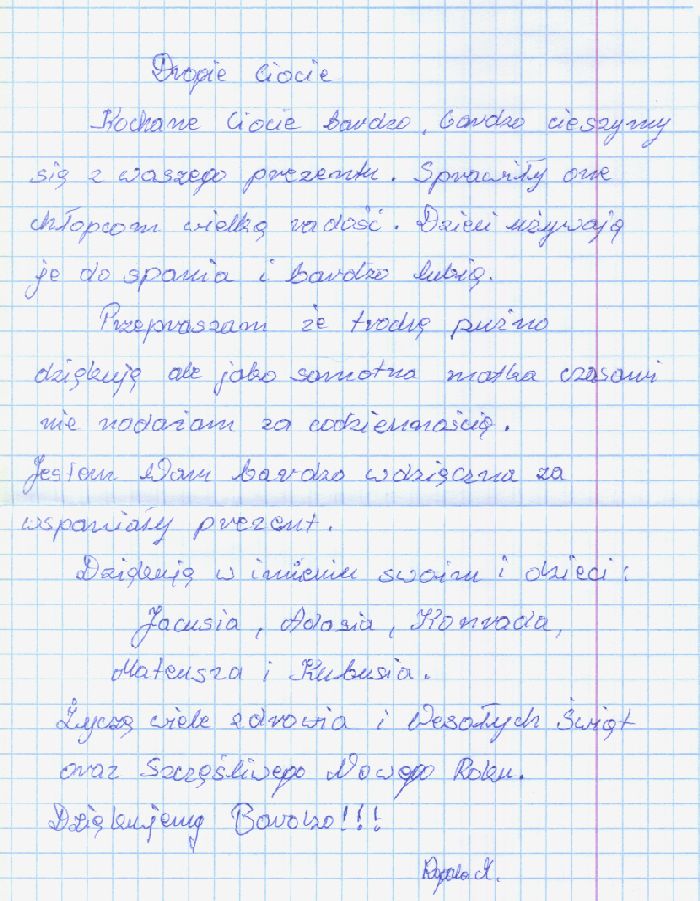 Drogie Ciocie
Kochane Ciocie bardzo, bardzo cieszymy
się z waszego prezentu. Sprawiły one
chłopcom wielką radość. Dzieci używają
je do spania i bardzo lubią.
Przepraszam że trochę puźno
dziękuję ale jako samotna matka czasami
nie nadążam za codziennością.
Jestem Wam bardzo wdzięczna za
wspaniały prezent.
Dziękuję w imieniu swoim i dzieci:
Jacusia, Adasia, Konrada,
Mateusza i Kubusia.
Życzę wiele zdrowia i Wesołych Świąt
oraz Szczęśliwego Nowego Roku.
Dziękujemy Bardzo!!!